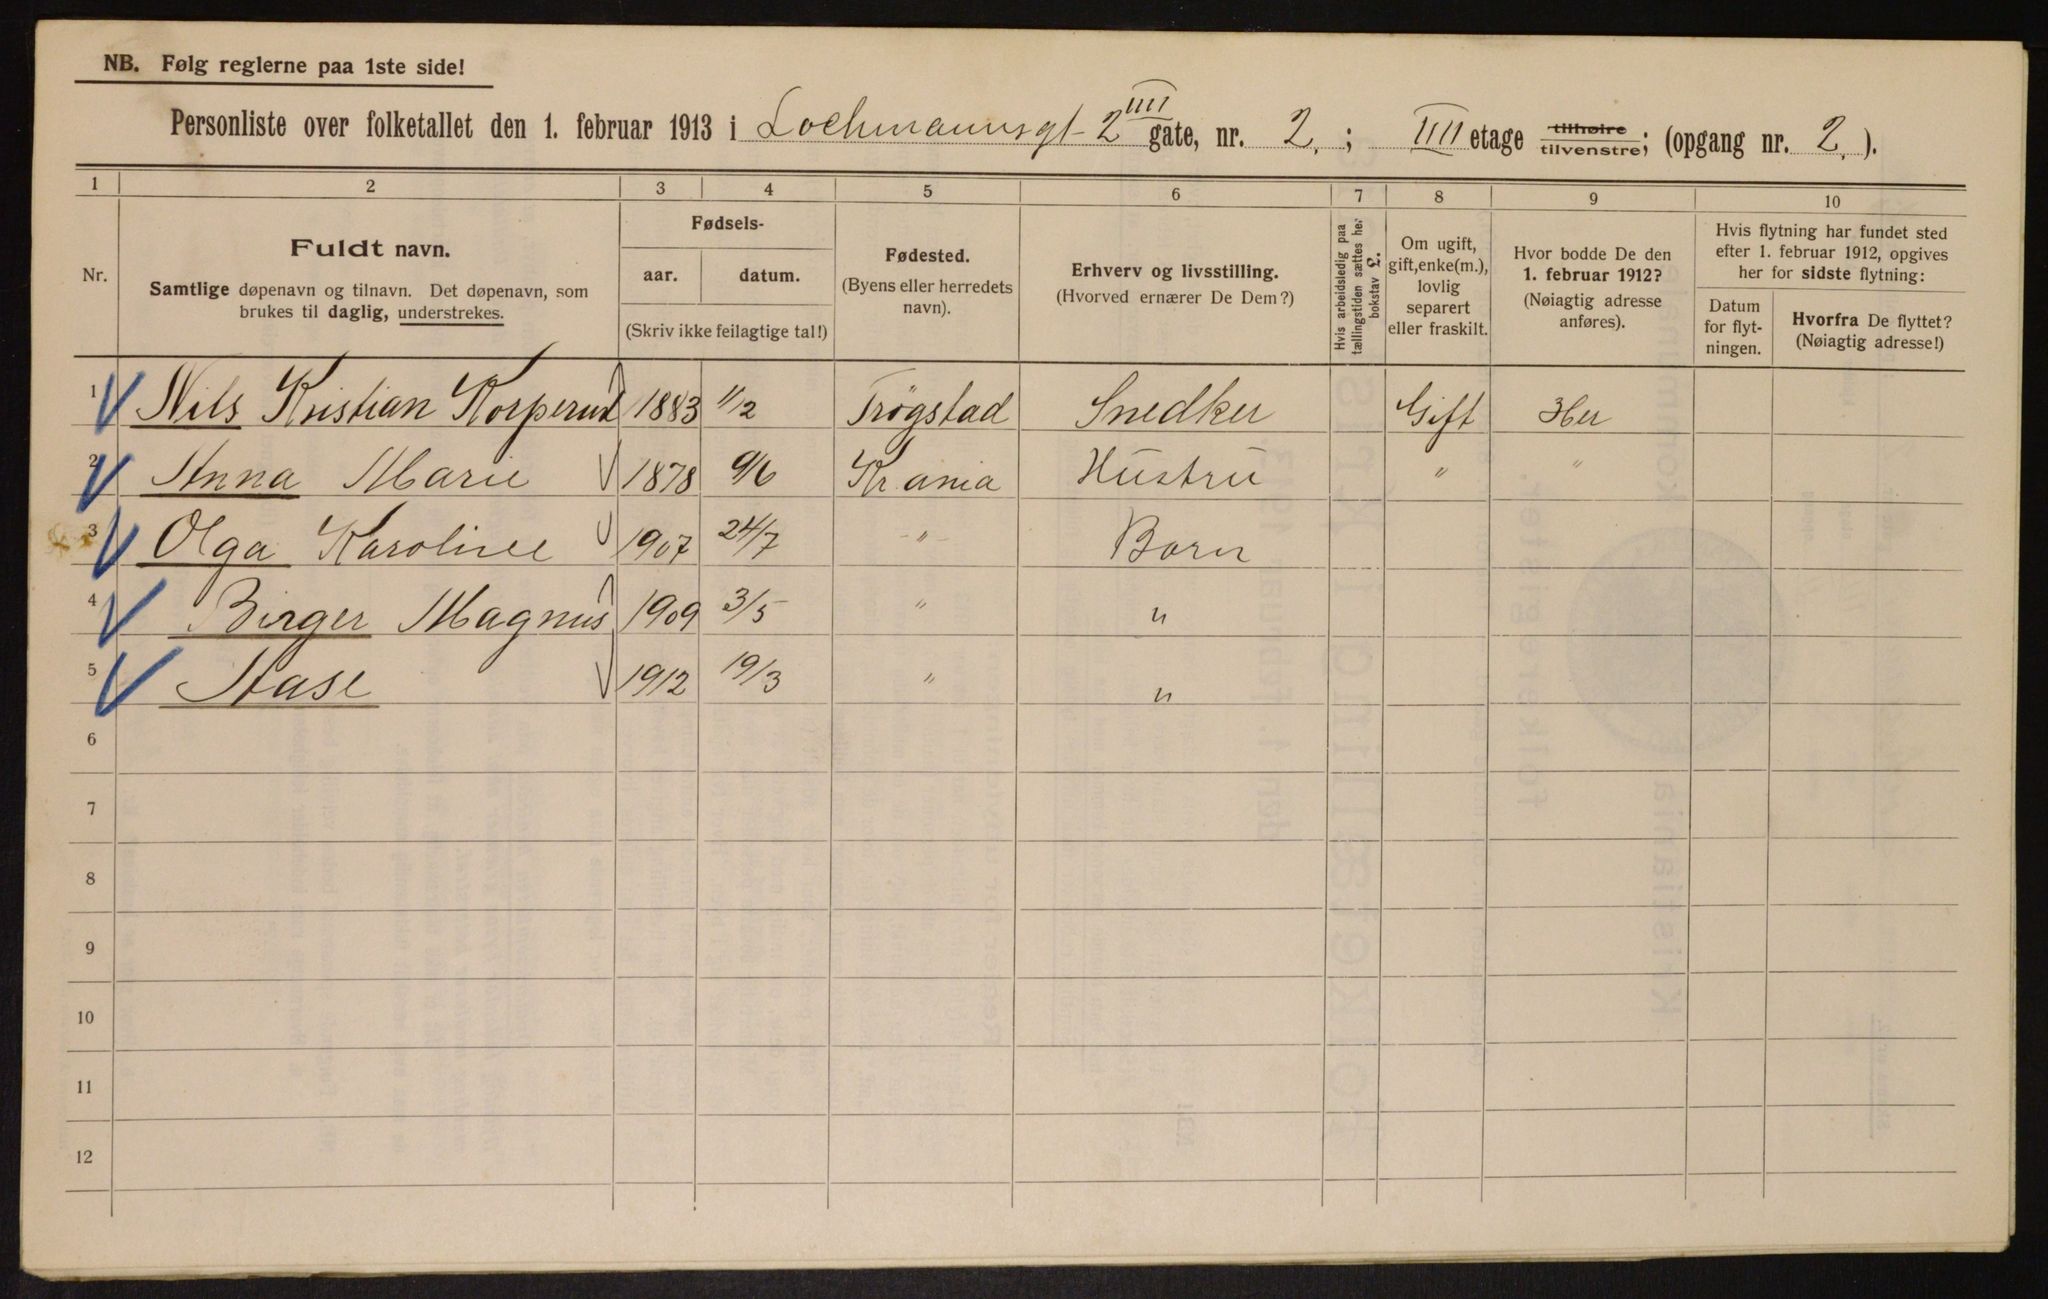 NB. Følg reglerne paa 1ste side!
Personliste over folketallet den 1. februar 1913 i Lochmannsgt 2 IIII gate, nr. 2. ; IIII etage tilhøire tilvenstre; (opgang nr. 2. ).
1 2 3 4 5 6 7 8 9 10
Nr.
Fuldt navn.
Samtlige døpenavn og tilnavn. Det døpenavn, som
brukes til daglig, understrekes.
Fødsels-
aar. datum.
(Skriv ikke feilagtige tal!)
Fødested.
(Byens eller herredets
navn).
Erhverv og livsstilling.
(Hvorved ernærer De Dem?)
Hvis arbeidsledig paa
tællingstiden sættes her
bokstav L.
Om ugift,
gift, enke(m.),
lovlig
separert
eller fraskilt.
Hvor bodde De den
1. februar 1912?
(Nøiagtig adresse
anføres).
Hvis flytning har fundet sted
efter 1. februar 1912, opgives
her for sidste flytning:
Datum
for flyt-
ningen.
Hvorfra De flyttet?
(Nøiagtig adresse!)
1 Nils Kristian Korperud 1883 1/2 Trøgstad Snedker Gift Her
2 Anna Marie 1878 9/6 Kr.ania Hustru " "
3 Olga Karoline 1907 24/7 -"- Barn
4 Birger Magnus 1909 3/5 " "
5 Aase 1912 19/3 " "
6
7
8
9
10
11
12